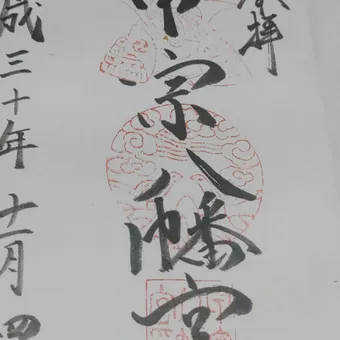 奉拝
甲宗八幡宮
成三十年十一月四